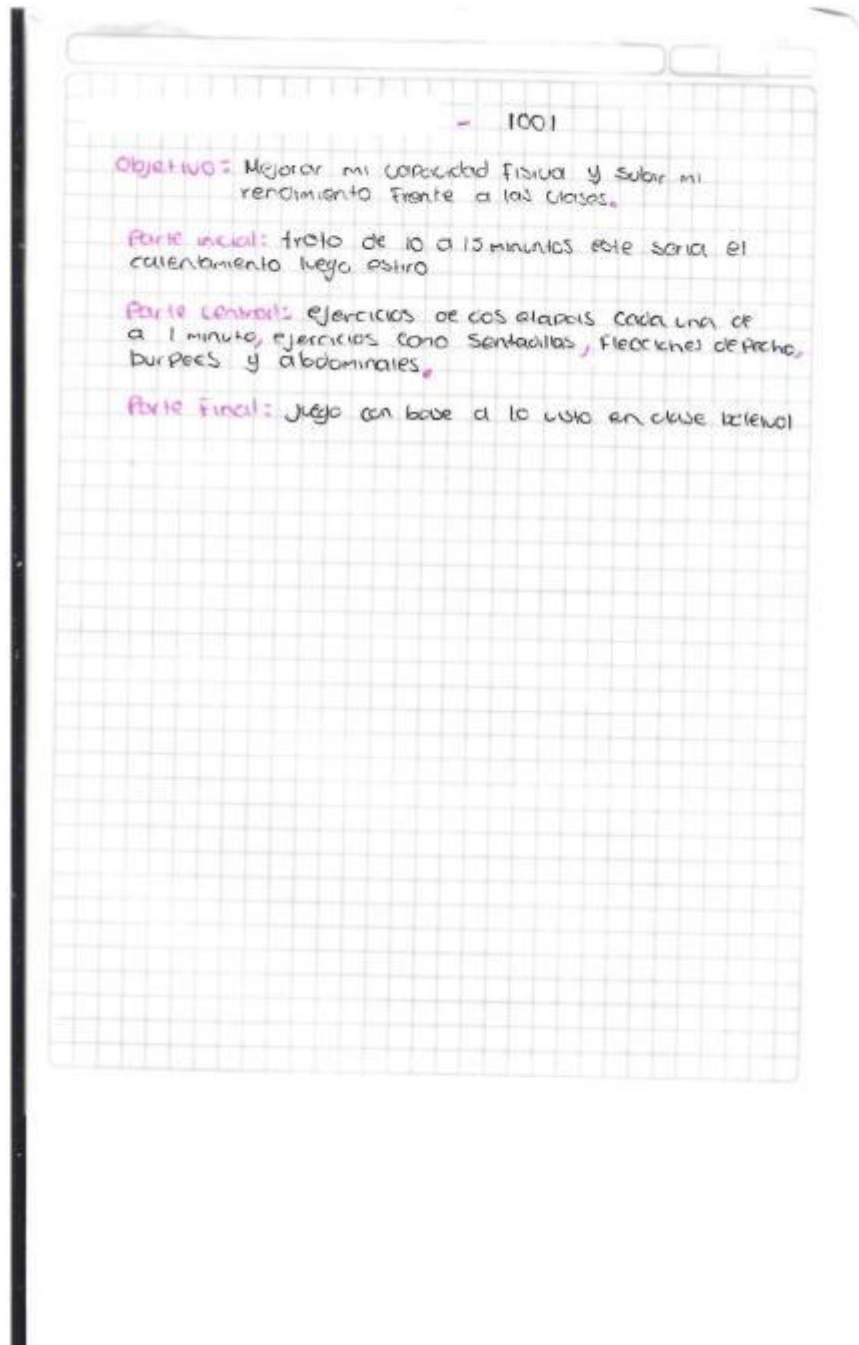 - 1001
Objetivo: Mejorar mi capacidad fisica y subir mi
rendimiento frente a las clases.
Parte inicial: troto de 10 a 15 minutos este seria el
calentamiento luego estiro
Parte central: ejercicios de dos etapas cada una de
a 1 minuto, ejercicios como sentadillas, flexiones de pecho,
burpees y abdominales.
Parte Final: juego con base a lo visto en clase